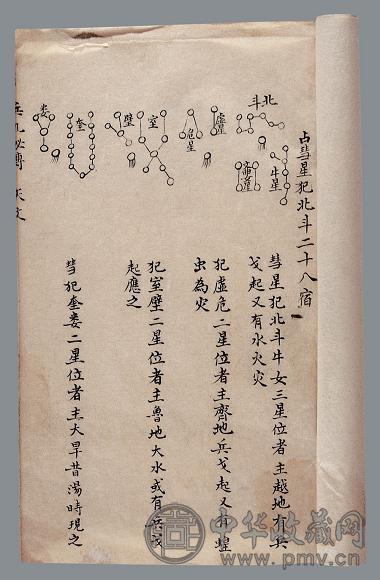 占彗星犯北斗二十八宿
北斗
牛星
女星
虛星
危星
室
壁
奎
婁
彗星犯北斗牛女三星位者主越地有兵
戈起又有水火災
犯虛危二星位者主齊地兵戈起又有蝗
虫為災
犯室壁二星位者主魯地大水或有兵戈
起應之
彗犯奎婁二星位者主大旱昔湯時現之
天文
中华收藏网
www.pmv.cn